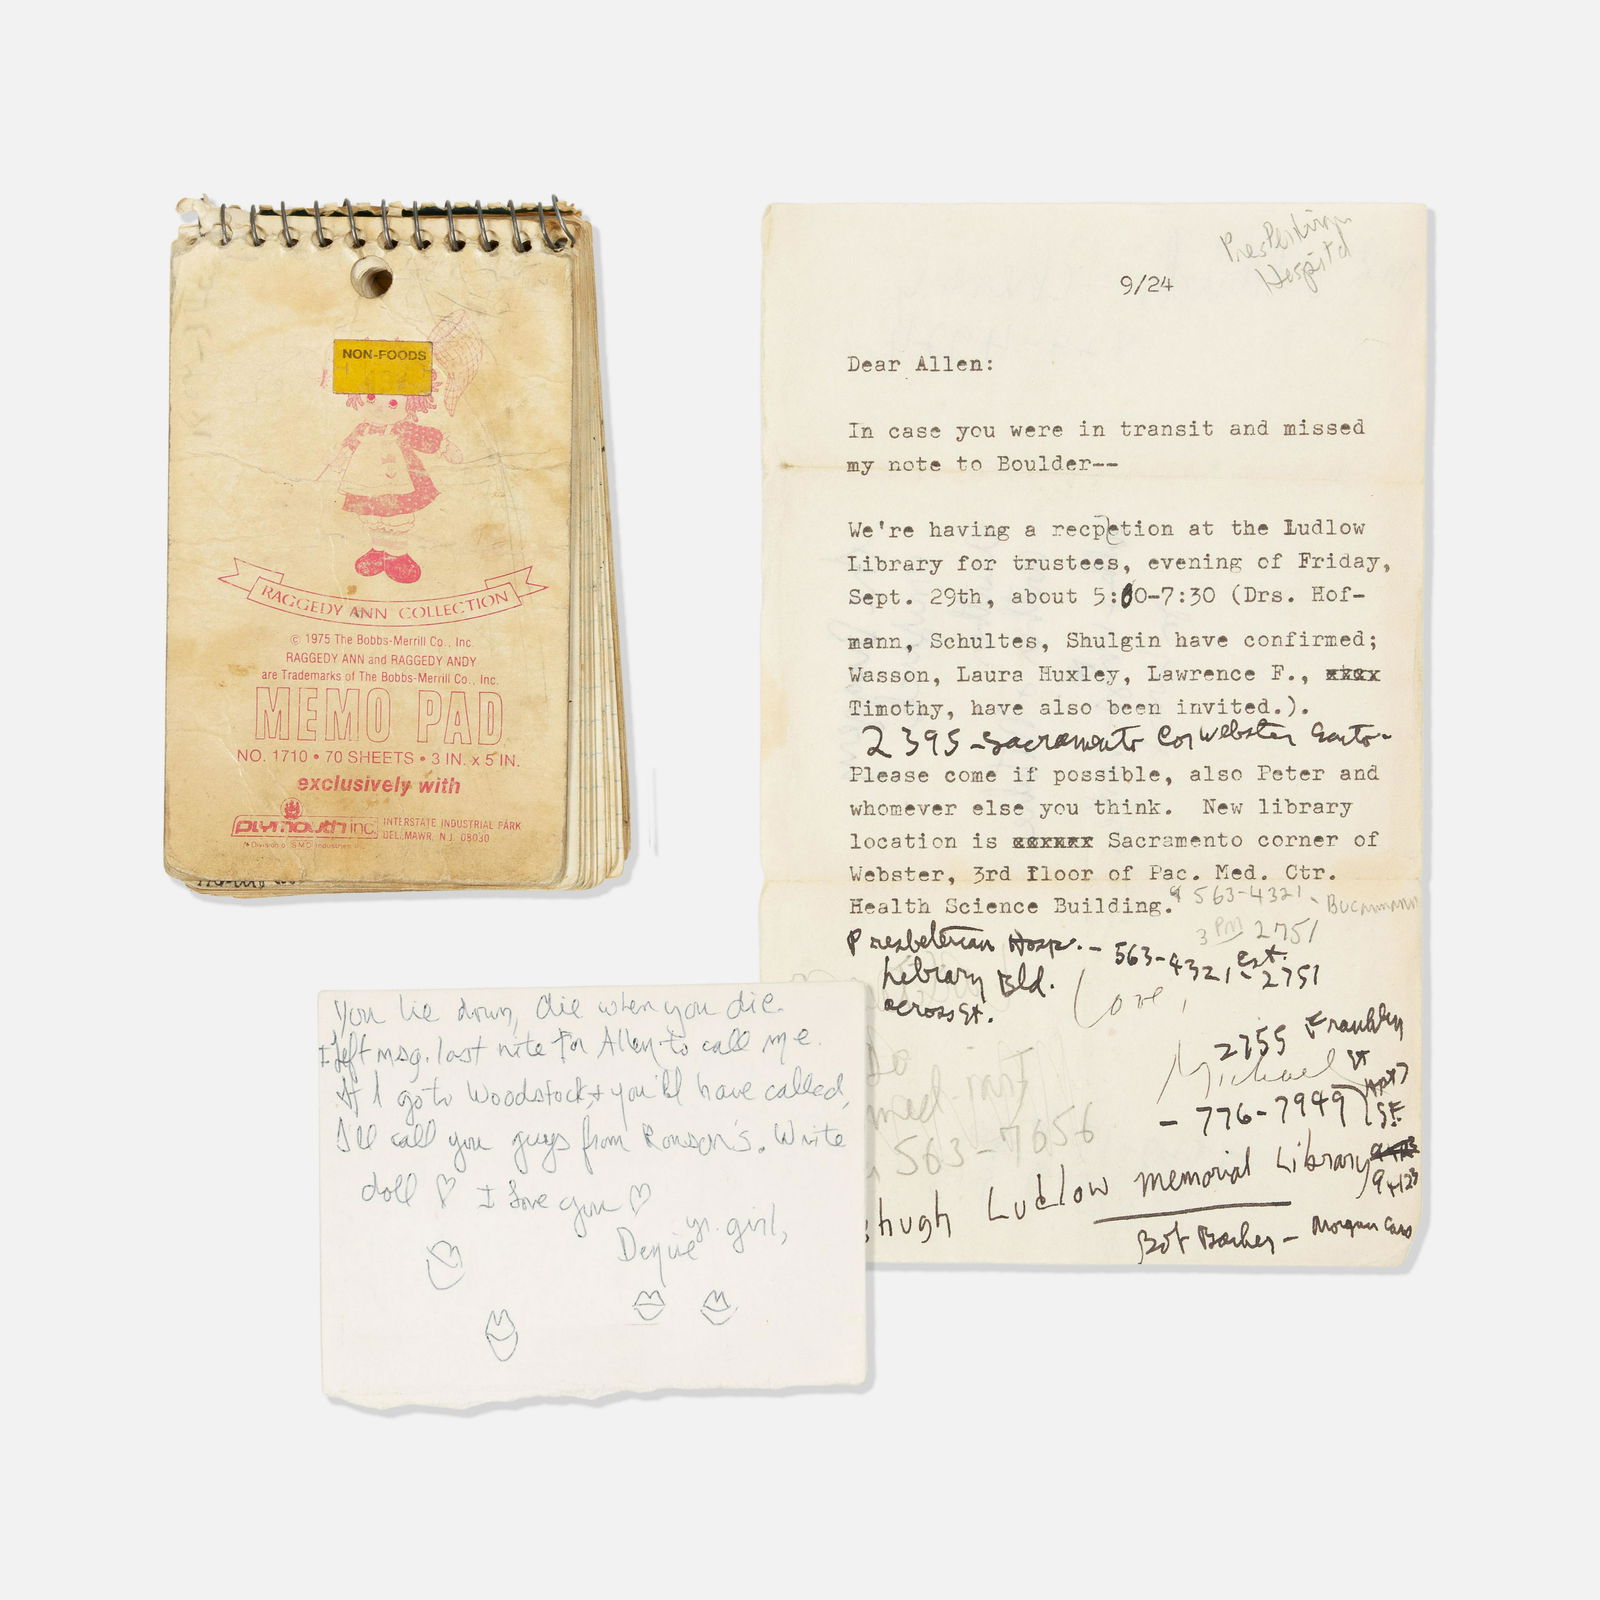 NON-FOODS
RAGGEDY ANN COLLECTION
© 1975 The Bobbs-Merrill Co., Inc.
RAGGEDY ANN and RAGGEDY ANDY
are Trademarks of The Bobbs-Merrill Co., Inc.
MEMO PAD
NO. 1710 • 70 SHEETS • 3 IN. x 5 IN.
exclusively with
plymouth inc.
INTERSTATE INDUSTRIAL PARK
BELLMAWR, N.J. 08030
A Division of SMD Industries, Inc.
Hospital
9/24
Dear Allen:
In case you were in transit and missed
my note to Boulder--
We're having a recpetion at the Ludlow
Library for trustees, evening of Friday,
Sept. 29th, about 5:00-7:30 (Drs. Hof-
mann, Schultes, Shulgin have confirmed;
Wasson, Laura Huxley, Lawrence F., xxxx
Timothy, have also been invited.).
2395 - Sacramento Cor Webster
Please come if possible, also Peter and
whomever else you think. New library
location is xxxxxx Sacramento corner of
Webster, 3rd floor of Pac. Med. Ctr.
Health Science Building.
563-4321 - Buchanan
3 PM 2751
Presbeterian Hosp. - 563-4321 ext. - 2751
Library Bld.
across St.
Love,
2755 Franklin
St
Michael
Apt 7
- 776-7949 SF.
563-7656
Hugh Ludlow Memorial Library
Bob Barker - Morgan
You lie down, die when you die.
I left msg. last nite for Allen to call me.
If I go to Woodstock, & you'll have called,
I'll call you guys from Ronson's. Write
doll ♡ I love you ♡
yr. girl,
Denise